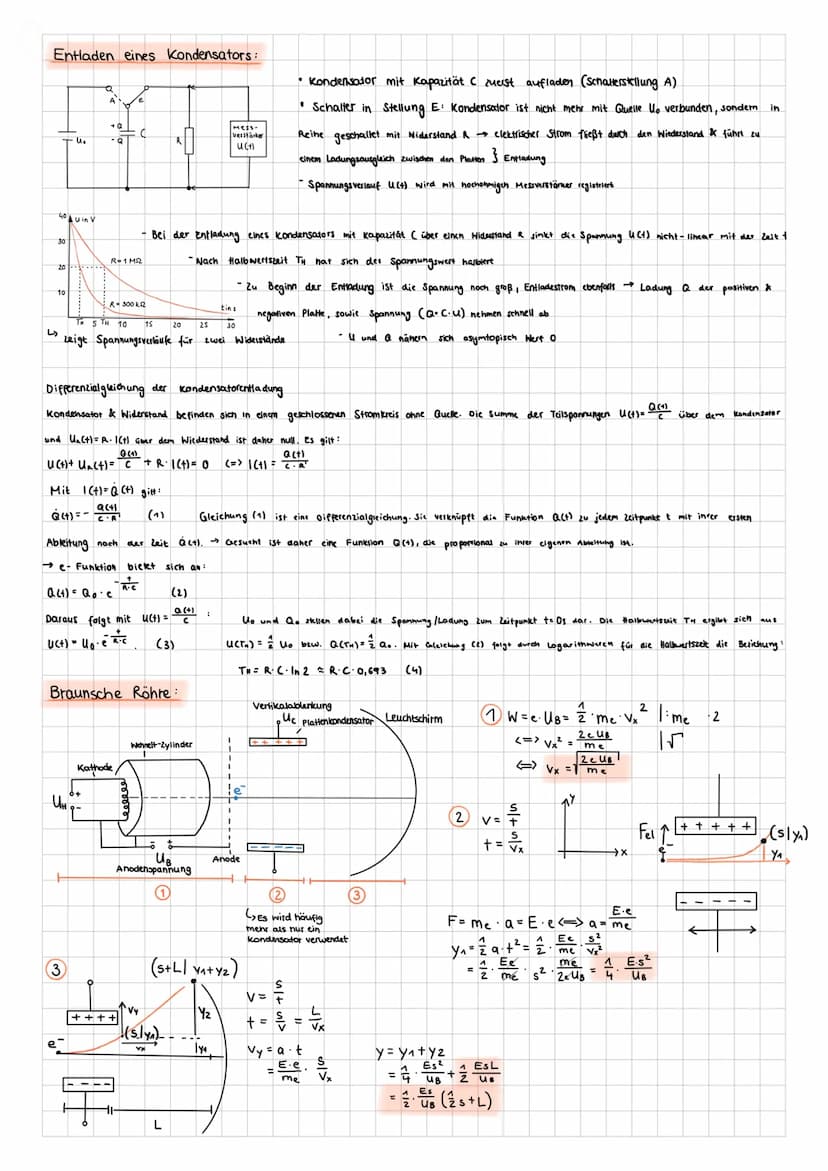 Entladen eines Kondensators:
• Kondensator mit Kapazität C zuerst aufladen (Schalterstellung A)
• Schalter in Stellung E: Kondensator ist nicht mehr mit Quelle U₀ verbunden, sondern in
Reihe geschaltet mit Widerstand R → elektrischer Strom fließt durch den Widerstand & führt zu
einem Ladungsausgleich zwischen den Platten } Entladung
- Spannungsverlauf U(t) wird mit hochohmigen Messverstärker registriert
A E
+Q
-Q
C
U₀
R
Mess-
verstärker
U(t)
U in V
40
30
20
10
R = 1 MΩ
R = 300 kΩ
t in s
TH 5 TH 10 15 20 25 30
- Bei der Entladung eines Kondensators mit Kapazität C über einen Widerstand R sinkt die Spannung U(t) nicht-linear mit der Zeit t
- Nach Halbwertszeit TH hat sich der Spannungswert halbiert
- Zu Beginn der Entladung ist die Spannung noch groß, Entladestrom ebenfalls → Ladung Q der positiven &
negativen Platte, sowie Spannung (Q=C·U) nehmen schnell ab
↳ zeigt Spannungsverläufe für zwei Widerstände
- U und Q nähern sich asymtopisch Wert 0
Differenzialgleichung der Kondensatorentladung
Kondensator & Widerstand befinden sich in einem geschlossenen Stromkreis ohne Quelle. Die Summe der Teilspannungen U(t)= Q(t)/C über dem Kondensator
und UR(t)= R·I(t) über dem Wiederstand ist daher null. Es gilt:
U(t)+ UR(t)= Q(t)/C + R·I(t)= 0 (=> I(t) = Q(t)/C·R
Mit I(t)=Q̇(t) gilt:
Q̇(t)= - Q(t)/C·R (1) Gleichung (1) ist eine Differenzialgleichung. Sie verknüpft die Funktion Q(t) zu jedem Zeitpunkt t mit ihrer ersten
Ableitung nach der Zeit Q̇(t). → Gesucht ist daher eine Funktion Q(t), die proportional zu ihrer eigenen Ableitung ist.
→ e- Funktion bietet sich an:
Q(t) = Q₀ · e^(-t/R·C) (2)
Daraus folgt mit U(t) = Q(t)/C : U₀ und Q₀ stellen dabei die Spannung/Ladung zum Zeitpunkt t=0s dar. Die Halbwertszeit TH ergibt sich aus
U(t) = U₀·e^(-t/R·C). (3) U(TH) = ½ U₀ bzw. Q(TH)= ½ Q₀. Mit Gleichung (2) folgt durch Logarithmieren für die Halbwertszeit die Beziehung:
TH = R·C·ln 2 ≈ R·C·0,693 (4)
Braunsche Röhre:
Vertikalablenkung
Uc Plattenkondensator
Leuchtschirm
Wehnelt-Zylinder
Kathode
UH
+
-
e⁻
UB
Anodenspannung
Anode
+ + + + +
- - - - -
① ② ③
↳ Es wird häufig
mehr als nur ein
Kondensator verwendet
① W = e·UB = ½ · me · vx² |: me ·2
<=> vx² = 2eUB/me |√
<=> vx = √(2eUB/me)
② v = s/t
t = s/vx
y
x
Fel
+ + + + +
(s|y₁)
e⁻
y₁
- - - - -
F = me · a = E · e <=> a = E·e/me
y₁ = ½ a·t² = ½ · Ee/me · s²/vx²
= ½ · Ee/me · s² · me/2eUB = ¼ · E·s²/UB
③
(s+L| y₁+y₂)
+ + + +
vy
(s|y₁)
vx
y₂
y₁
e⁻
- - - -
L
v = s/t
t = s/v = L/vx
vy = a · t
= E·e/me · s/vx
y = y₁+y₂
= ¼ · Es²/UB + ½ EsL/UB
= ½ · Es/UB (½s+L)